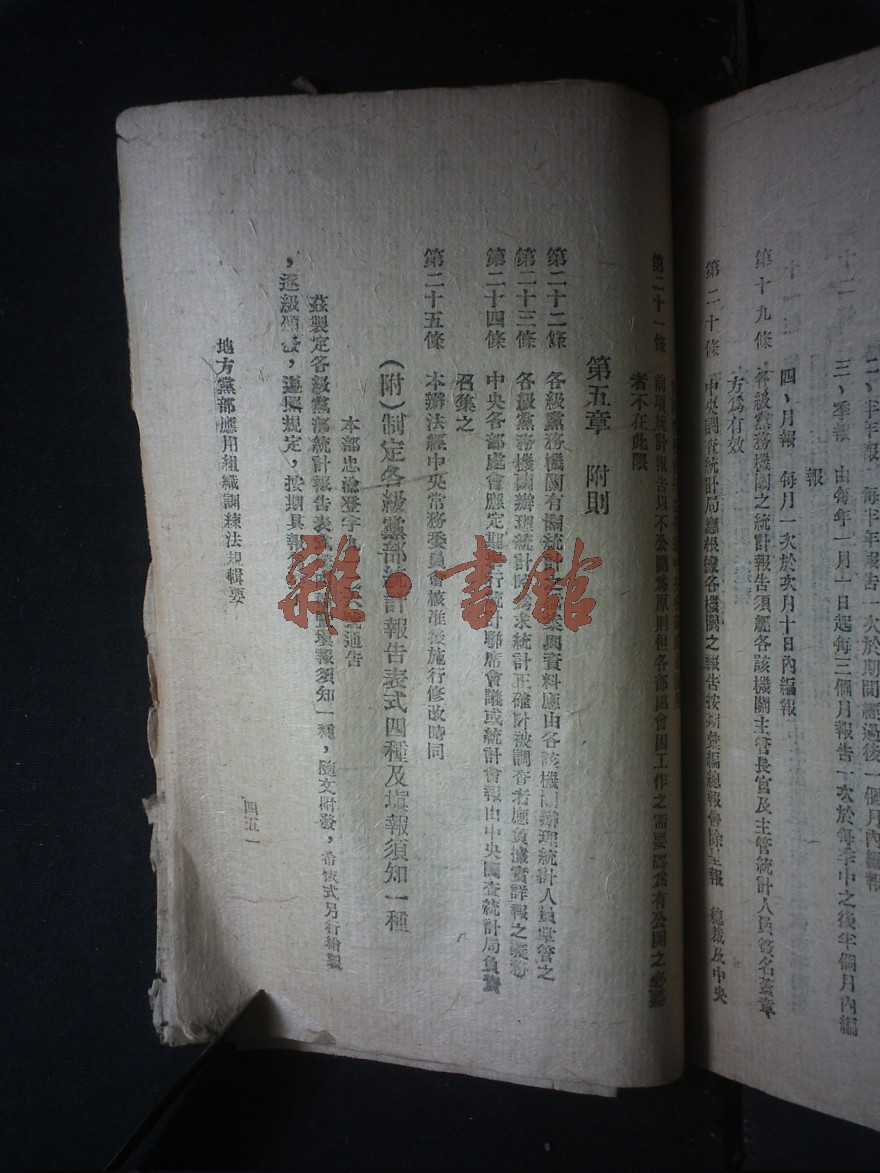 二、半年報　每半年報告一次於期間經過後一個月內編報
三、季報　由每年一月一日起每三個月報告一次於每季中之後半個月內編
報
四、月報　每月一次於次月十日內編報
第十九條　各級黨務機關之統計報告須經各該機關主管長官及主管統計人員簽名蓋章
方爲有效
第二十條　中央調查統計局應根據各機關之報告按期彙編總報告除呈報　總裁及中央
第二十一條　前項統計報告以不公開爲原則但各部處會因工作之需要認爲有公開之必要
者不在此限
第五章　附則
第二十二條　各級黨務機關有關統計之檔案與資料應由各該機關辦理統計人員掌管之
第二十三條　各級黨務機關辦理統計時爲求統計正確計被調查者應負據實詳報之義務
第二十四條　中央各部處會應定期舉行統計聯席會議或統計會報由中央調查統計局負責
召集之
第二十五條　本辦法經中央常務委員會核准後施行修改時同
（附）制定各級黨部統計報告表式四種及塡報須知一種
本部忠渝登字　通告
茲製定各級黨部統計報告表式四種塡報須知一種，隨文附發，希依式另行繪製
，逐級頒發，遵照規定，按期具報
地方黨部應用組織訓練法規輯要
四五一
雜·書館